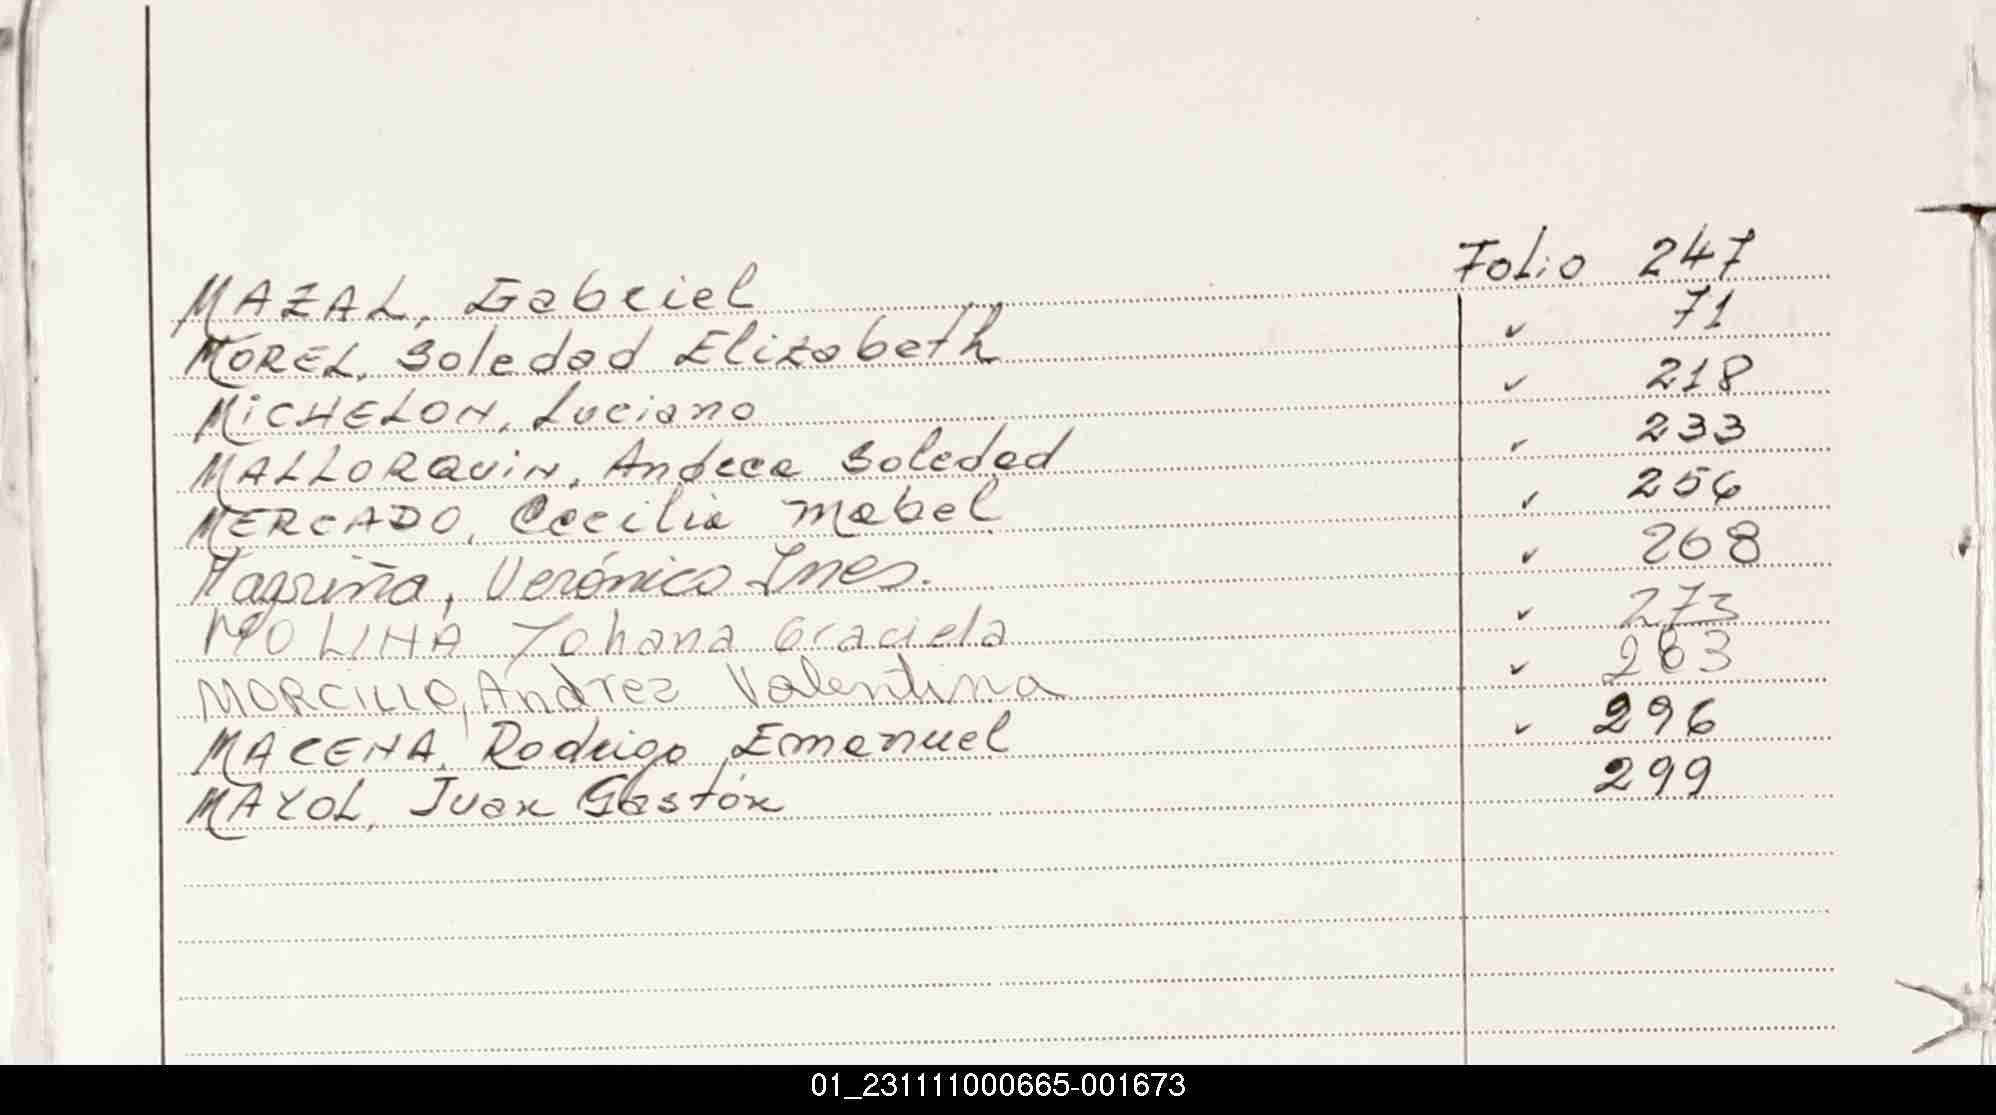 MAZAL, Gabriel Folio 247
MOREL, Soledad Elizabeth ✓ 71
MICHELON, Luciano ✓ 218
MALLORQUIN, Andrea Soledad ✓ 233
MERCADO, Cecilia Mabel ✓ 256
Magriña, Verónica Ines. ✓ 268
MOLINA Johana Graciela ✓ 273
MORCILLO, Andrez Valentina ✓ 283
MACENA, Rodrigo Emanuel ✓ 296
MAYOL, Juan Gastón 299
01_231111000665-001673